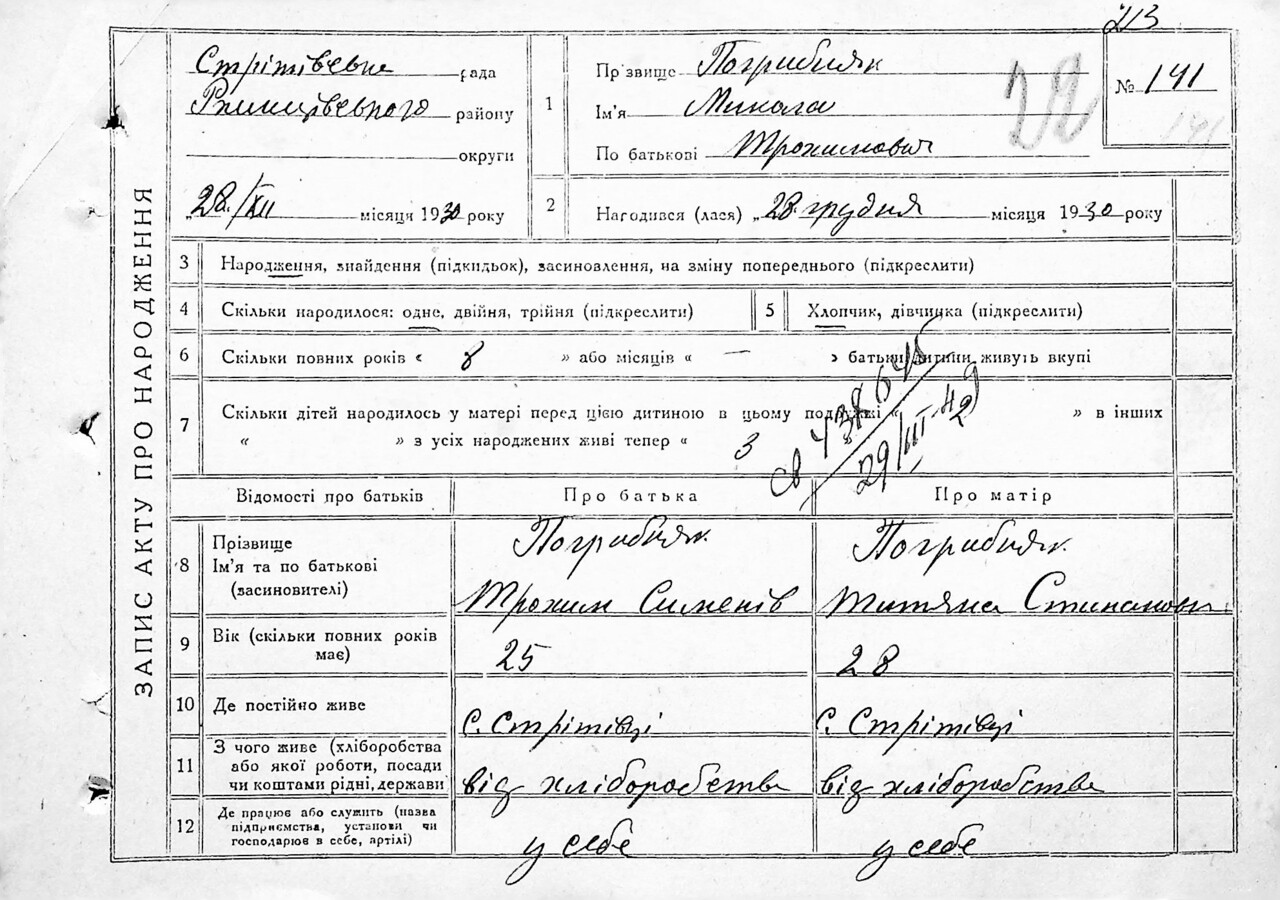 213
Стрітівська рада
району
округи
28/XII місяця 1930 року
1
Прізвище Погрибняк
Ім'я Микола
По батькові Трохимович
22
№ 141
141
2
Народився (лася) „28 грудня місяця 1930 року
ЗАПИС АКТУ ПРО НАРОДЖЕННЯ
3 Народження, знайдення (підкидьок), засиновлення, на зміну попереднього (підкреслити)
4 Скільки народилося: одне, двійня, трійня (підкреслити)
5 Хлопчик, дівчинка (підкреслити)
6 Скільки повних років « 8 » або місяців « — » батьки дитини живуть вкупі
7 Скільки дітей народилось у матері перед цією дитиною в цьому подружжі « » в інших
« » з усіх народжених живі тепер « 3
св 438645
29/III-49
Відомості про батьків
Про батька
Про матір
8 Прізвище
Ім'я та по батькові
(засиновителі)
Погрибняк
Трохим Сименів
Погрибняк
Титяна Стипановн
9 Вік (скільки повних років
має)
25
28
10 Де постійно живе
с. Стрітівці
с. Стрітівці
11 З чого живе (хліборобства
або якої роботи, посади
чи коштами рідні, держави
від хліборобства
від хліборобства
12 Де працює або служить (назва
підприємства, установи чи
господарює в себе, артілі)
у себе
у себе